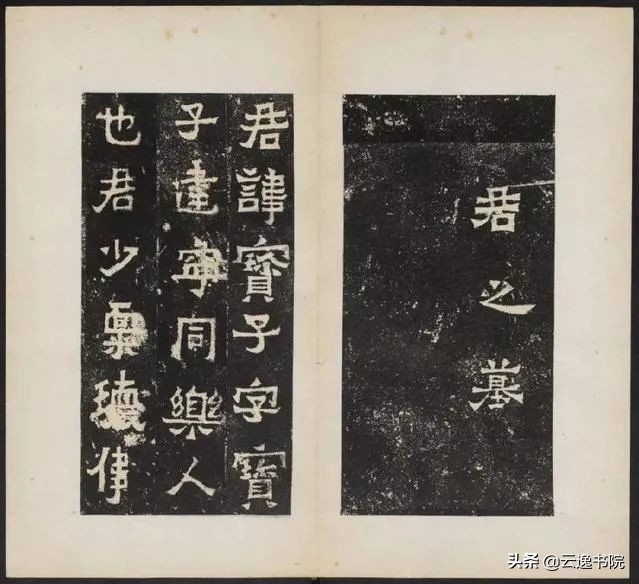 君之墓
君諱寶子字寶
子建寧同樂人
也君少稟瓌偉
头条 @云逸书院